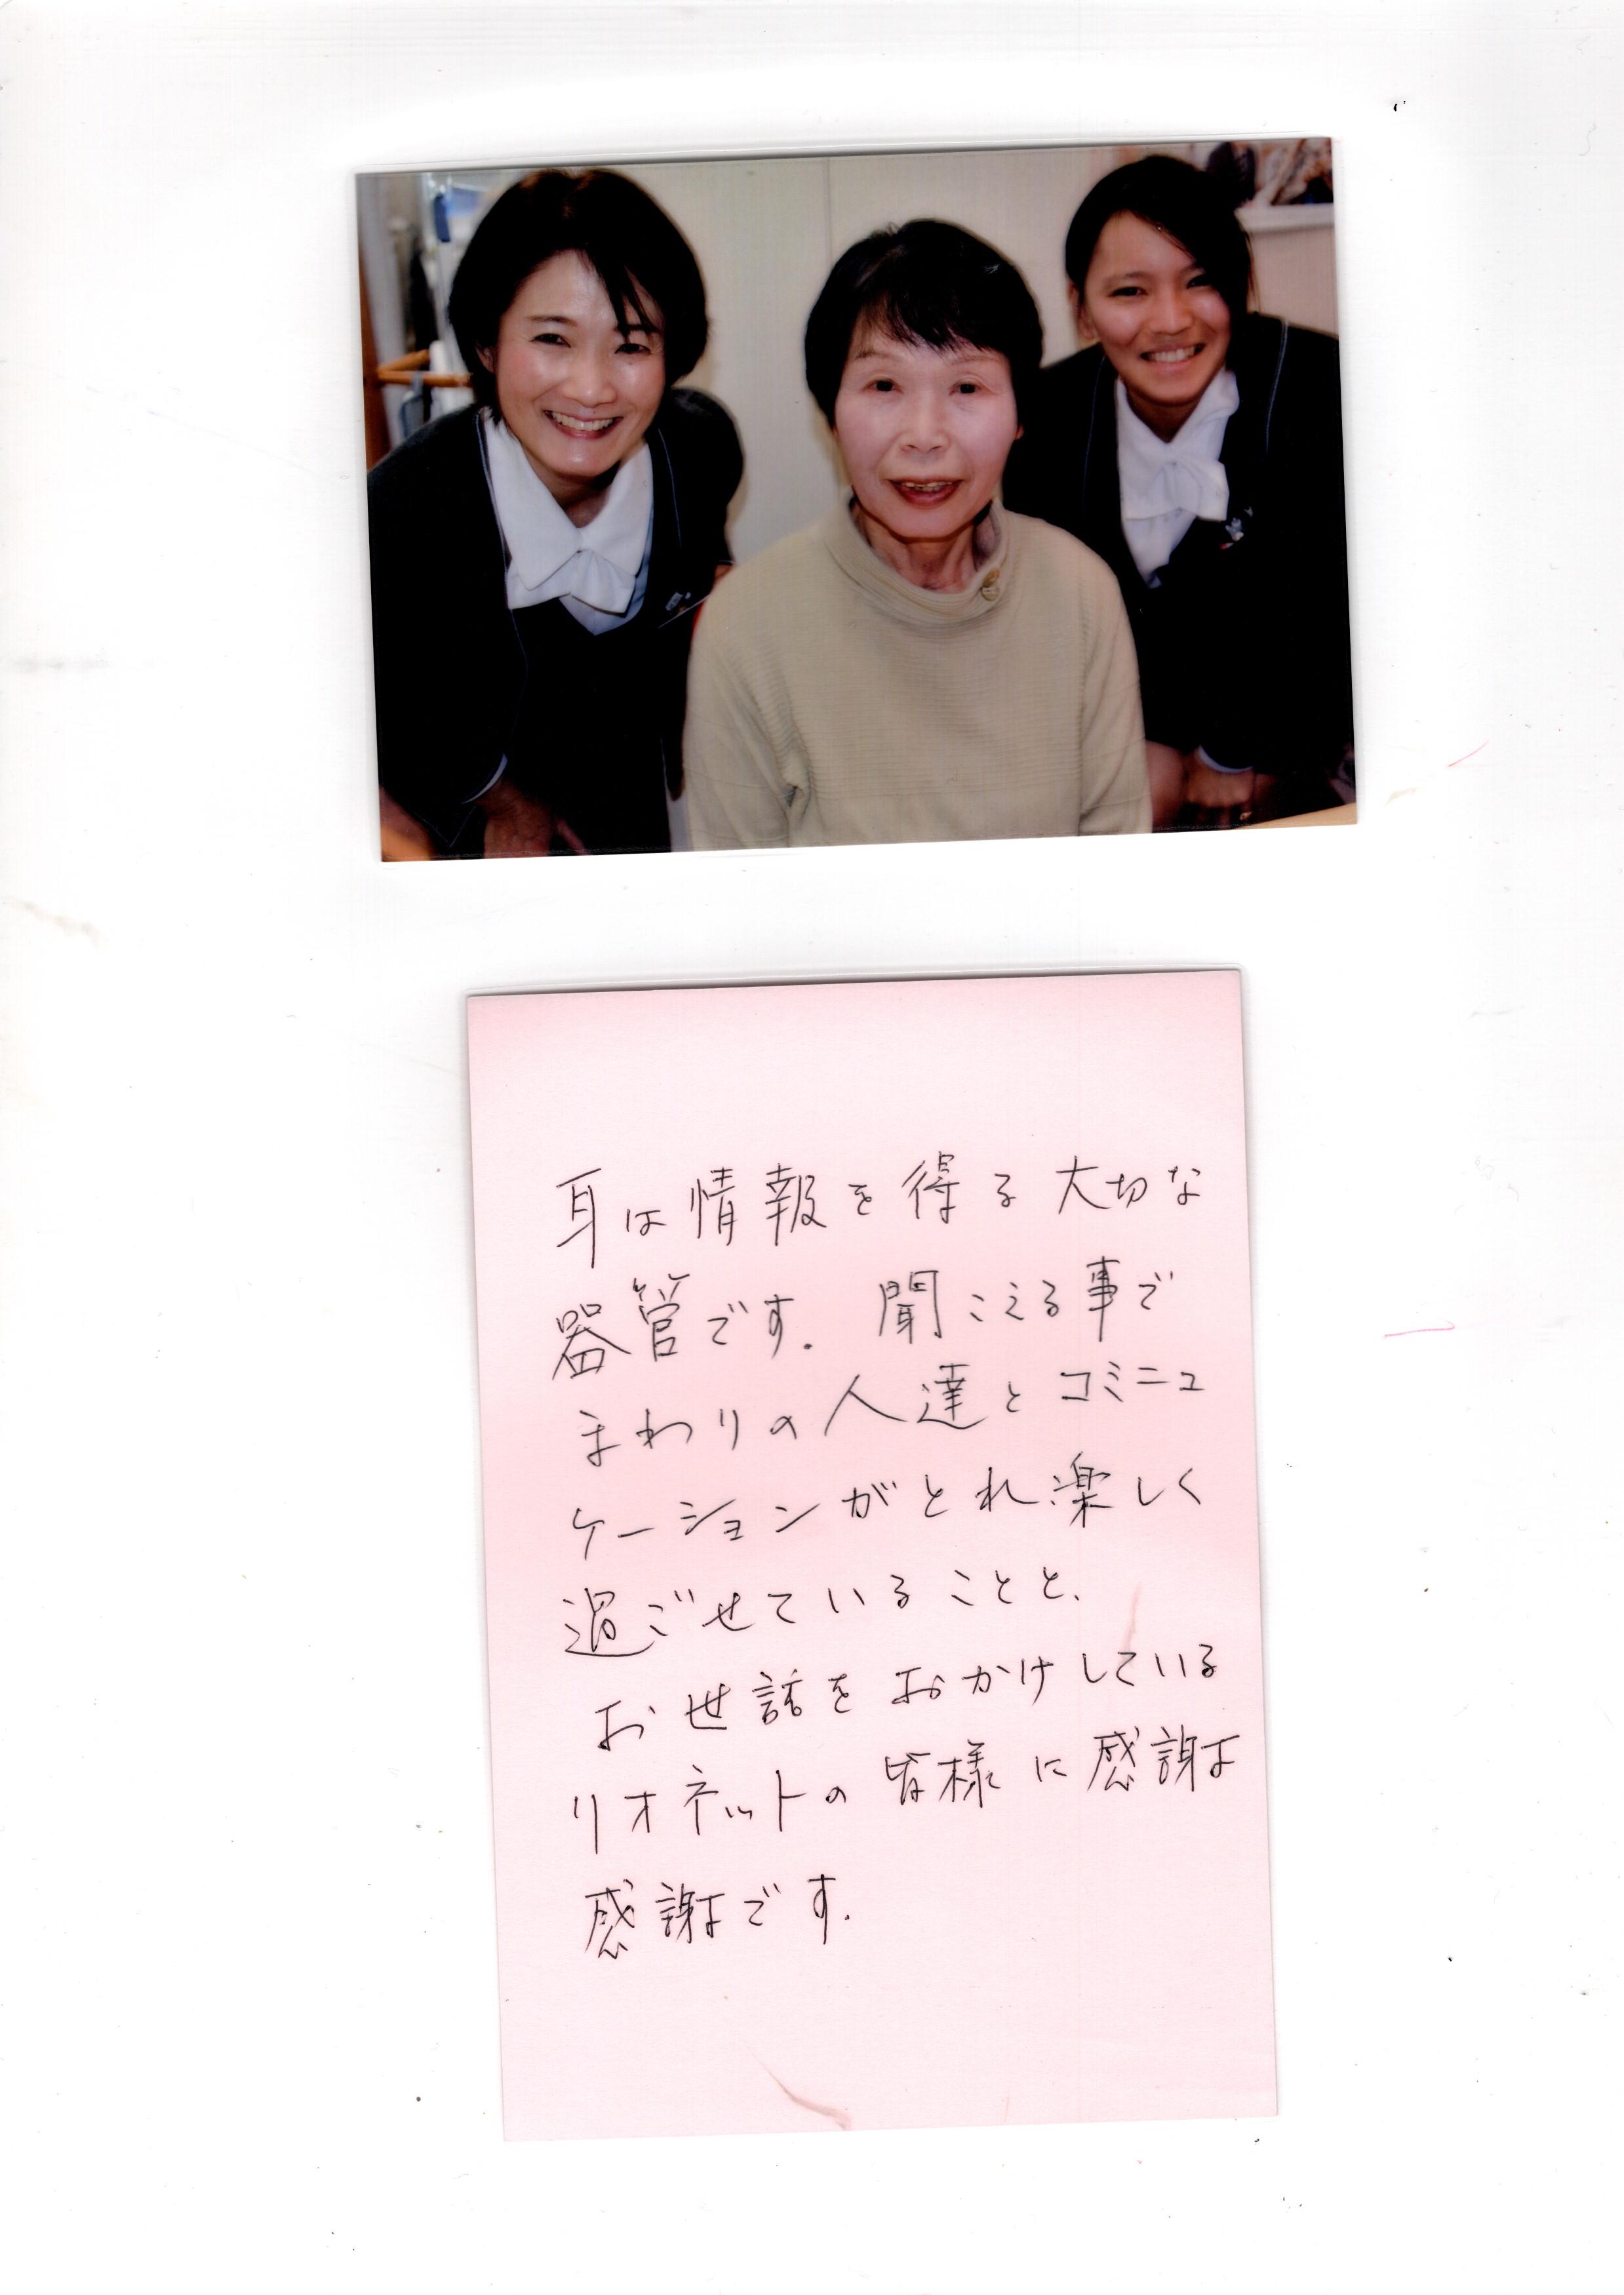 耳は情報を得る大切な
器管です. 聞こえる事で
まわりの人達とコミニュ
ケーションがとれ楽しく
過ごせていることと、
お世話をおかけしている
リオネットの皆様に感謝
感謝です.